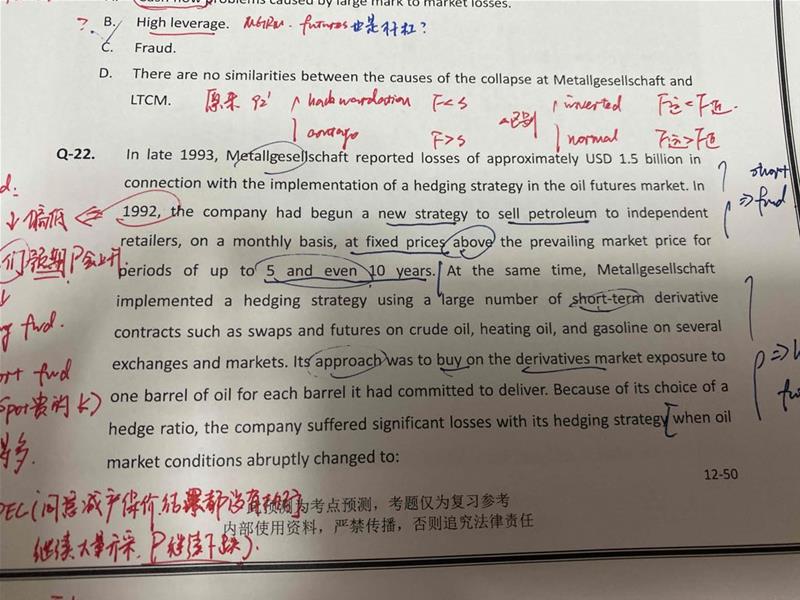 problems caused by large mark to market losses.
B. High leverage. MGRM. futures 也是杠杆?
C. Fraud.
D. There are no similarities between the causes of the collapse at Metallgesellschaft and
LTCM. 原来 92' backwardation F<S inverted F远<F近.
F>S normal F远>F近
Q-22. In late 1993, Metallgesellschaft reported losses of approximately USD 1.5 billion in
connection with the implementation of a hedging strategy in the oil futures market. In
1992, the company had begun a new strategy to sell petroleum to independent
retailers, on a monthly basis, at fixed prices above the prevailing market price for
periods of up to 5 and even 10 years. At the same time, Metallgesellschaft
implemented a hedging strategy using a large number of short-term derivative
contracts such as swaps and futures on crude oil, heating oil, and gasoline on several
exchanges and markets. Its approach was to buy on the derivatives market exposure to
one barrel of oil for each barrel it had committed to deliver. Because of its choice of a
hedge ratio, the company suffered significant losses with its hedging strategy when oil
market conditions abruptly changed to:
short
⇒ fwd
↓偏低
们预期P会上升
fwd.
fwd
12-50
为考点预测，考题仅为复习参考
内部使用资料，严禁传播，否则追究法律责任
继续大量开采, P继续下跌).